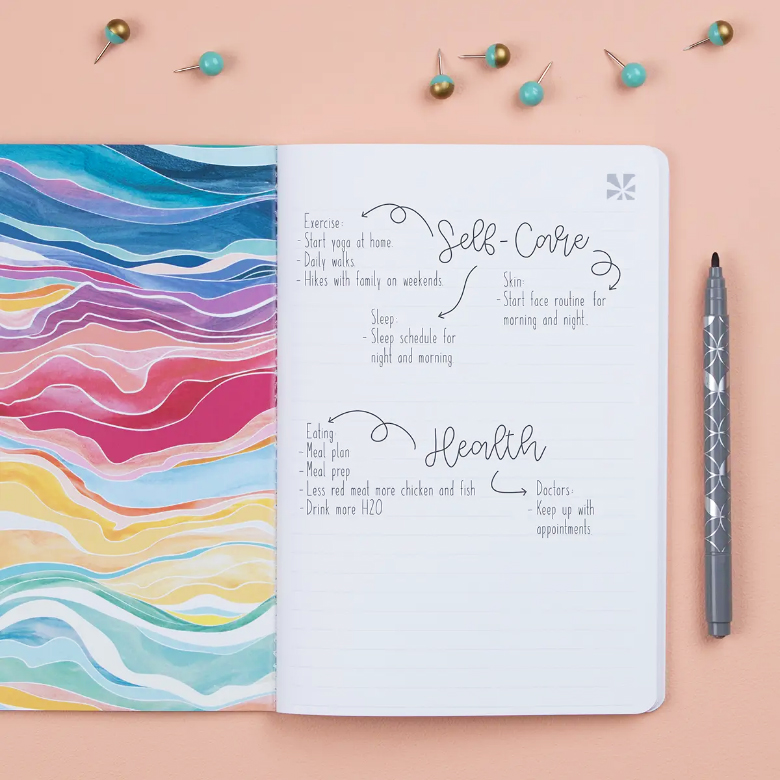 Self-Care
Exercise:
- Start yoga at home.
- Daily walks.
- Hikes with family on weekends.
Skin:
- Start face routine for
morning and night.
Sleep:
- Sleep schedule for
night and morning
Health
Eating
- Meal plan
- Meal prep
- Less red meat more chicken and fish
- Drink more H2O
Doctors:
- Keep up with
appointments